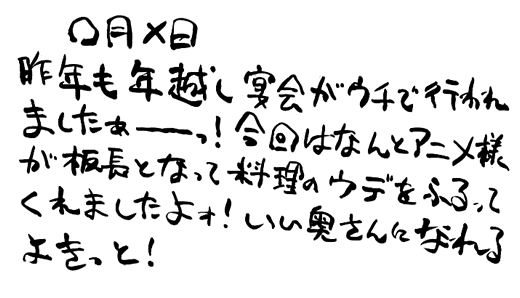 〇月×日
昨年も年越し宴会がウチで行われ
ましたぁーーっ!今回はなんとアニメ様
が板長となって料理のウデをふるって
くれましたよォ!いい奥さんになれる
よきっと!